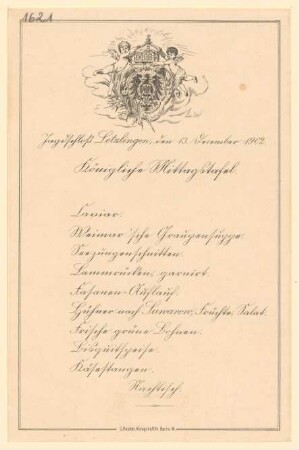 1621
Jagdschloß Letzlingen, den 13. Dezember 1902.
Königliche Mittagstafel.
Caviar.
Weimar'sche Graupensuppe.
Seezungenschnitten.
Lammrücken, garnirt.
Fasanen-Auflauf.
Hühner nach Suwarow, Früchte, Salat.
Frische grüne Bohnen.
Bisquitspeise.
Käsestangen.
Nachtisch.